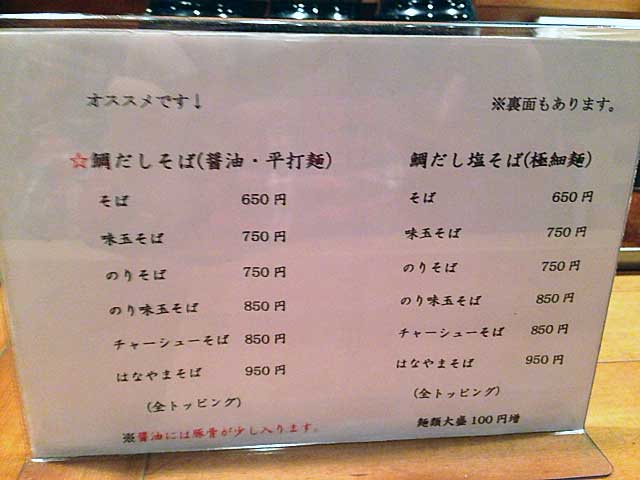 オススメです↓
※裏面もあります。
☆鯛だしそば(醤油・平打麺)
そば 650円
味玉そば 750円
のりそば 750円
のり味玉そば 850円
チャーシューそば 850円
はなやまそば 950円
(全トッピング)
※醤油には豚骨が少し入ります。
鯛だし塩そば(極細麺)
そば 650円
味玉そば 750円
のりそば 750円
のり味玉そば 850円
チャーシューそば 850円
はなやまそば 950円
(全トッピング)
麺類大盛100円増